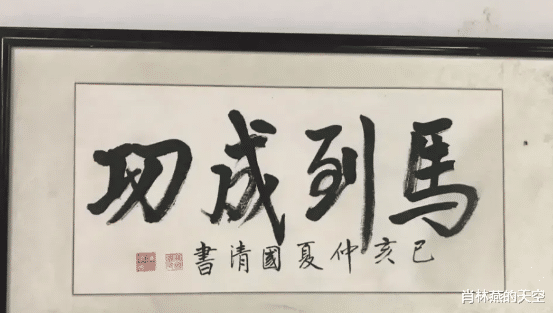 馬到成功
己亥仲夏國清書
肖林燕的天空